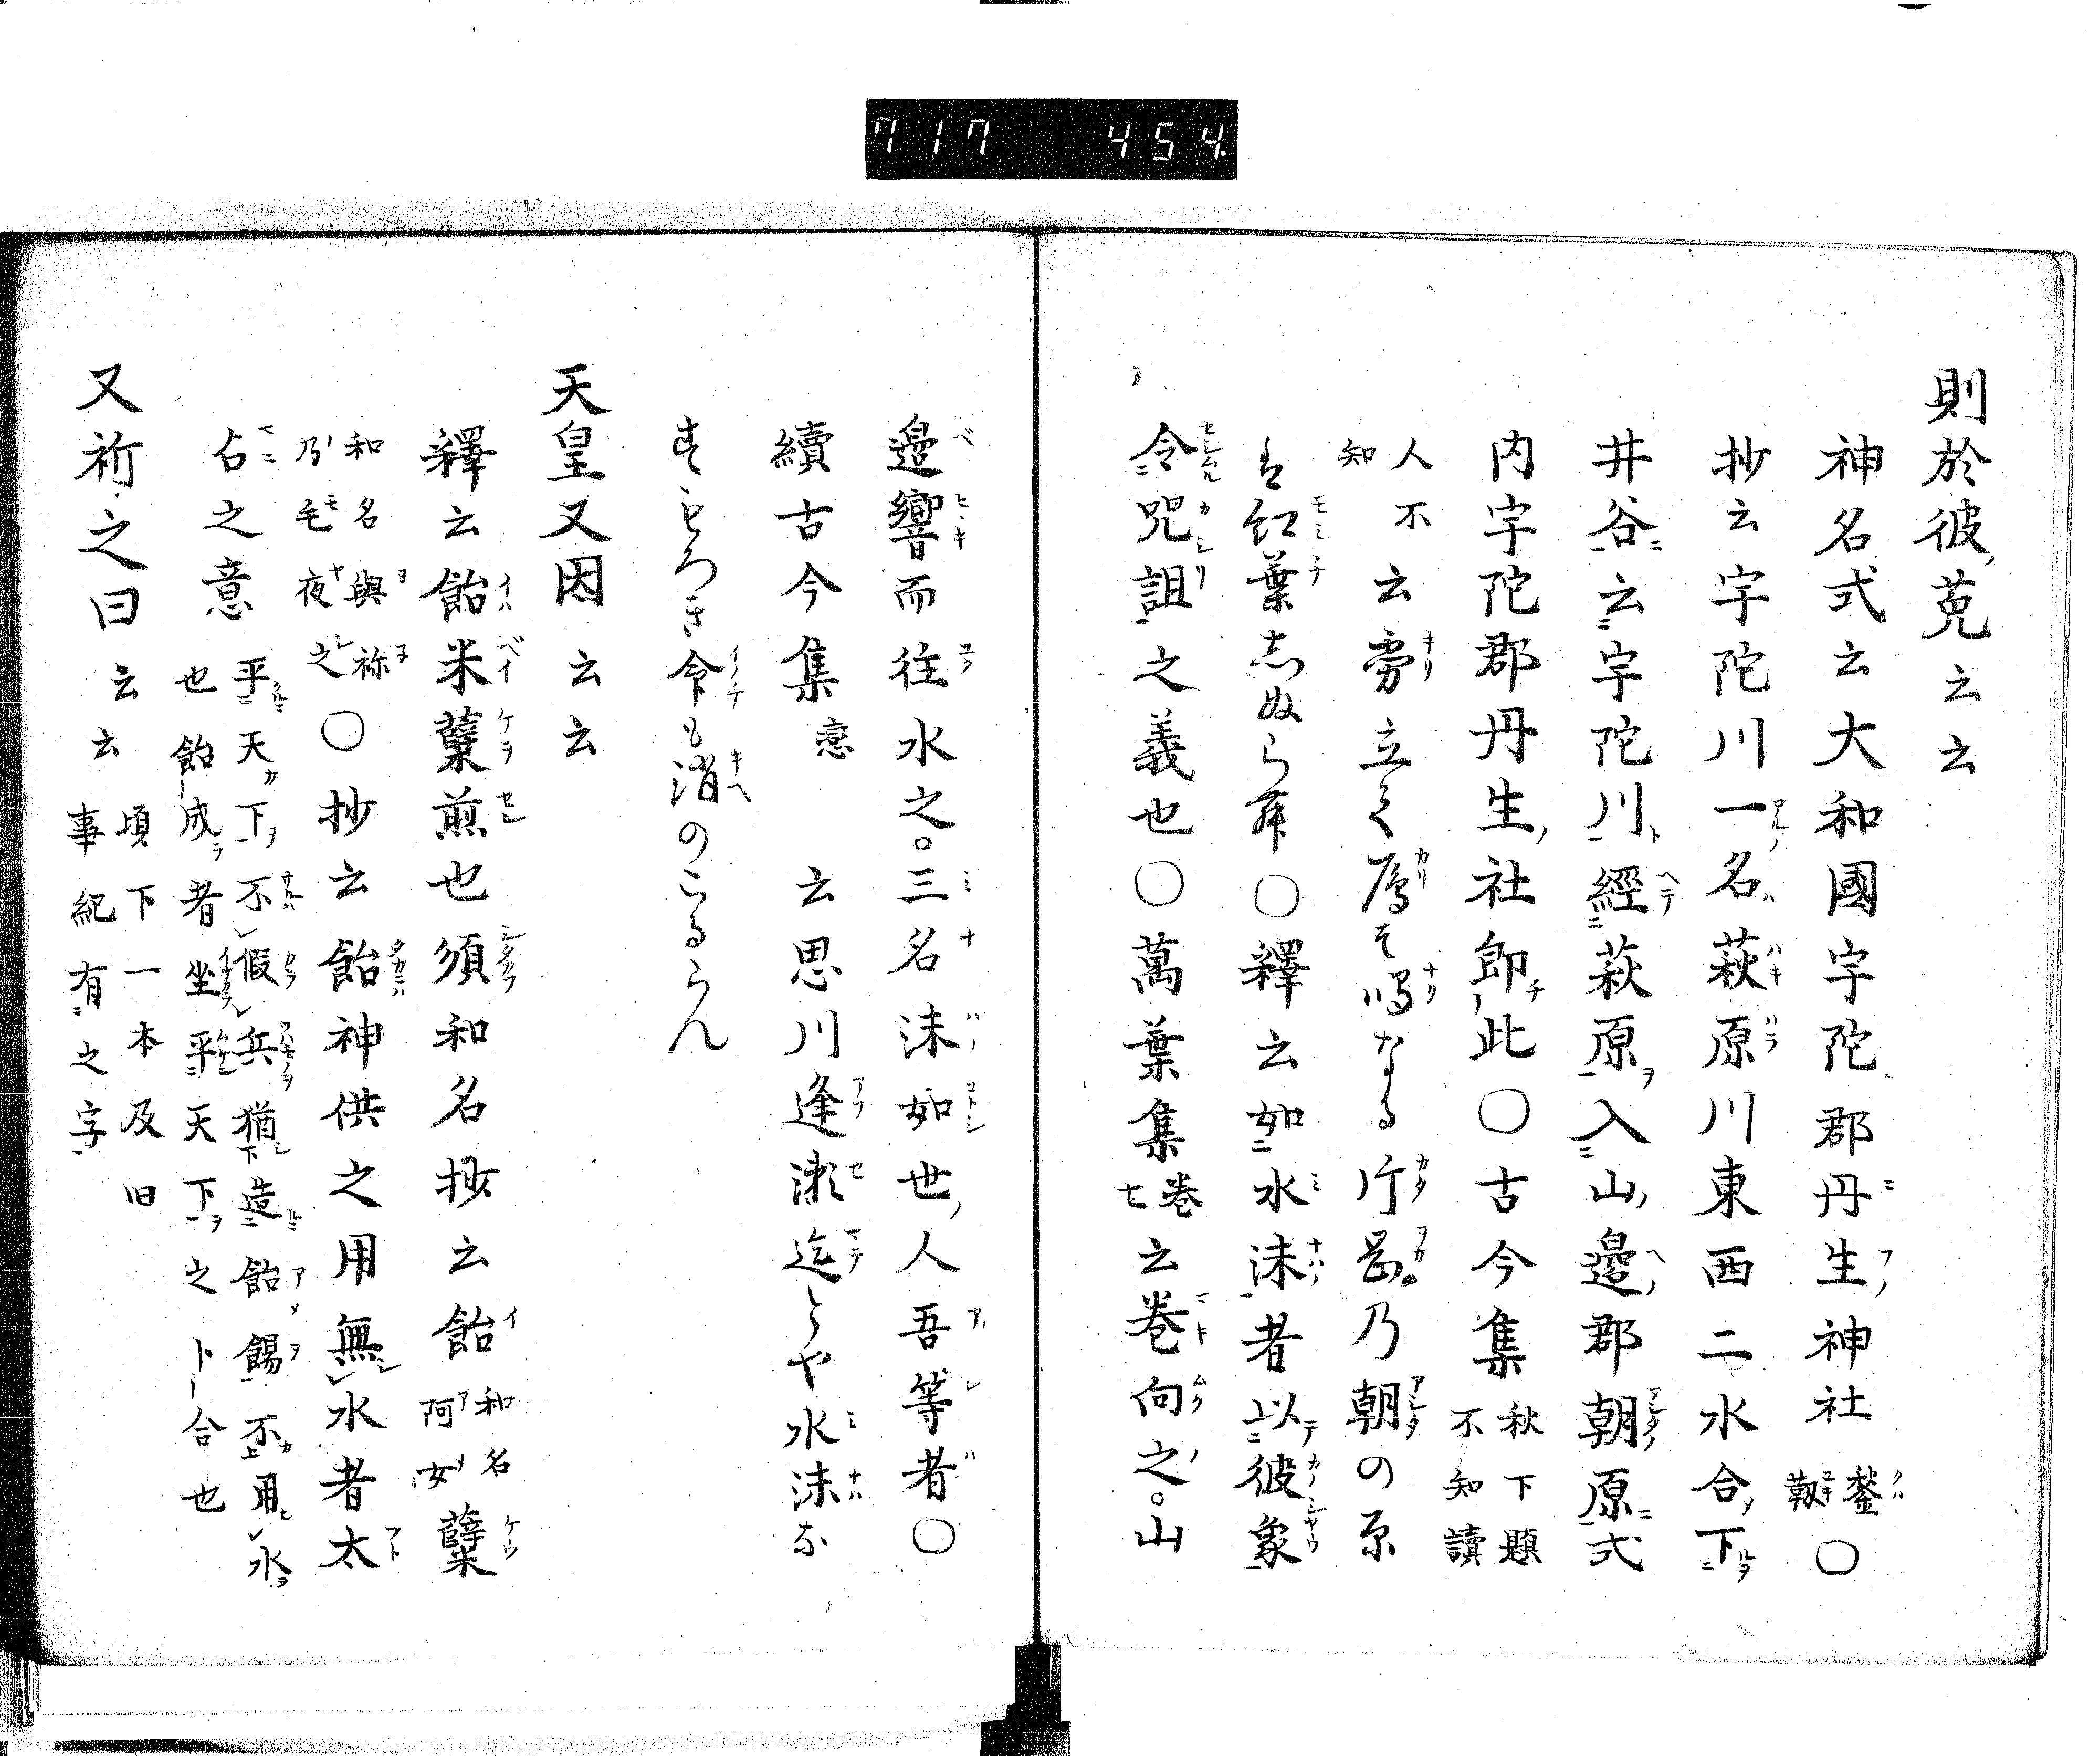 717 454
則於彼菟云云
神名式云大和國宇陀郡丹生神社鍫靱〇
抄云宇陀川一名萩原川東西二水合下
井谷云宇陀川經萩原入山邊郡朝原式
内宇陀郡丹生社即此〇古今集秋下題不知讀
人不知云霧立て鴈そ鳴なる片岡乃朝の原
は紅葉志ぬらむ〇釋云如水沫者以彼象
令咒詛之義也〇萬葉集卷七云卷向之山
邊響而往水之三名沫如世人吾等者〇
續古今集戀云思川逢瀬迄とや水沫な
すもろき命も消のこるらん
天皇又因云云
釋云飴米糵煎也須和名抄云飴和名阿女糵
和名與祢乃毛夜之〇抄云飴神供之用無水者太
占之意平天下不假兵猶造飴餳不用水也飴成者坐平天下之卜合也
又祈之曰云云頃下一本及旧事紀有之字